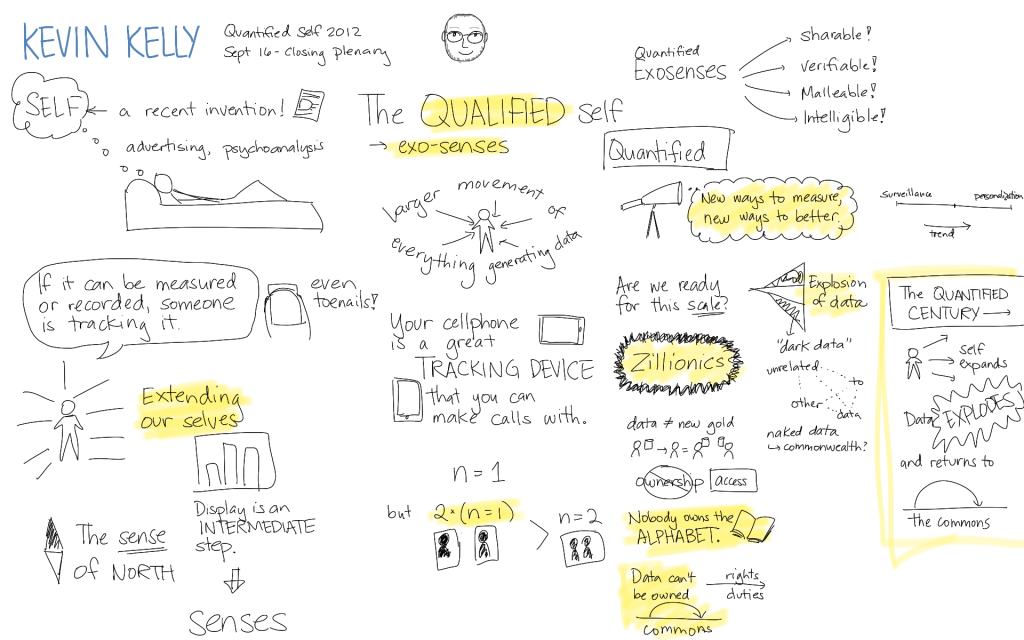 KEVIN KELLY
Quantified Self 2012
Sept 16 - Closing plenary
SELF
a recent invention!
advertising, psychoanalysis
If it can be measured
or recorded, someone
is tracking it.
even
toenails!
Extending
our selves
Display is an
INTERMEDIATE
step.
The sense
of NORTH
senses
The QUALIFIED self
→ exo-senses
larger movement of
everything generating data
Your cellphone
is a great
TRACKING DEVICE
that you can
make calls with.
n=1
but 2×(n=1) > n=2
Quantified
Exosenses
sharable!
verifiable!
Malleable!
Intelligible!
Quantified
New ways to measure,
new ways to better.
surveillance
personalization
trend
Are we ready
for this scale?
Zillionics
Explosion
of data
"dark data"
unrelated
to
other
data
data ≠ new gold
naked data
↳ commonwealth?
ownership
access
Nobody owns the
ALPHABET.
Data can't
be owned
rights
duties
commons
The QUANTIFIED
CENTURY →
self
expands
Data EXPLODES
and returns to
the commons